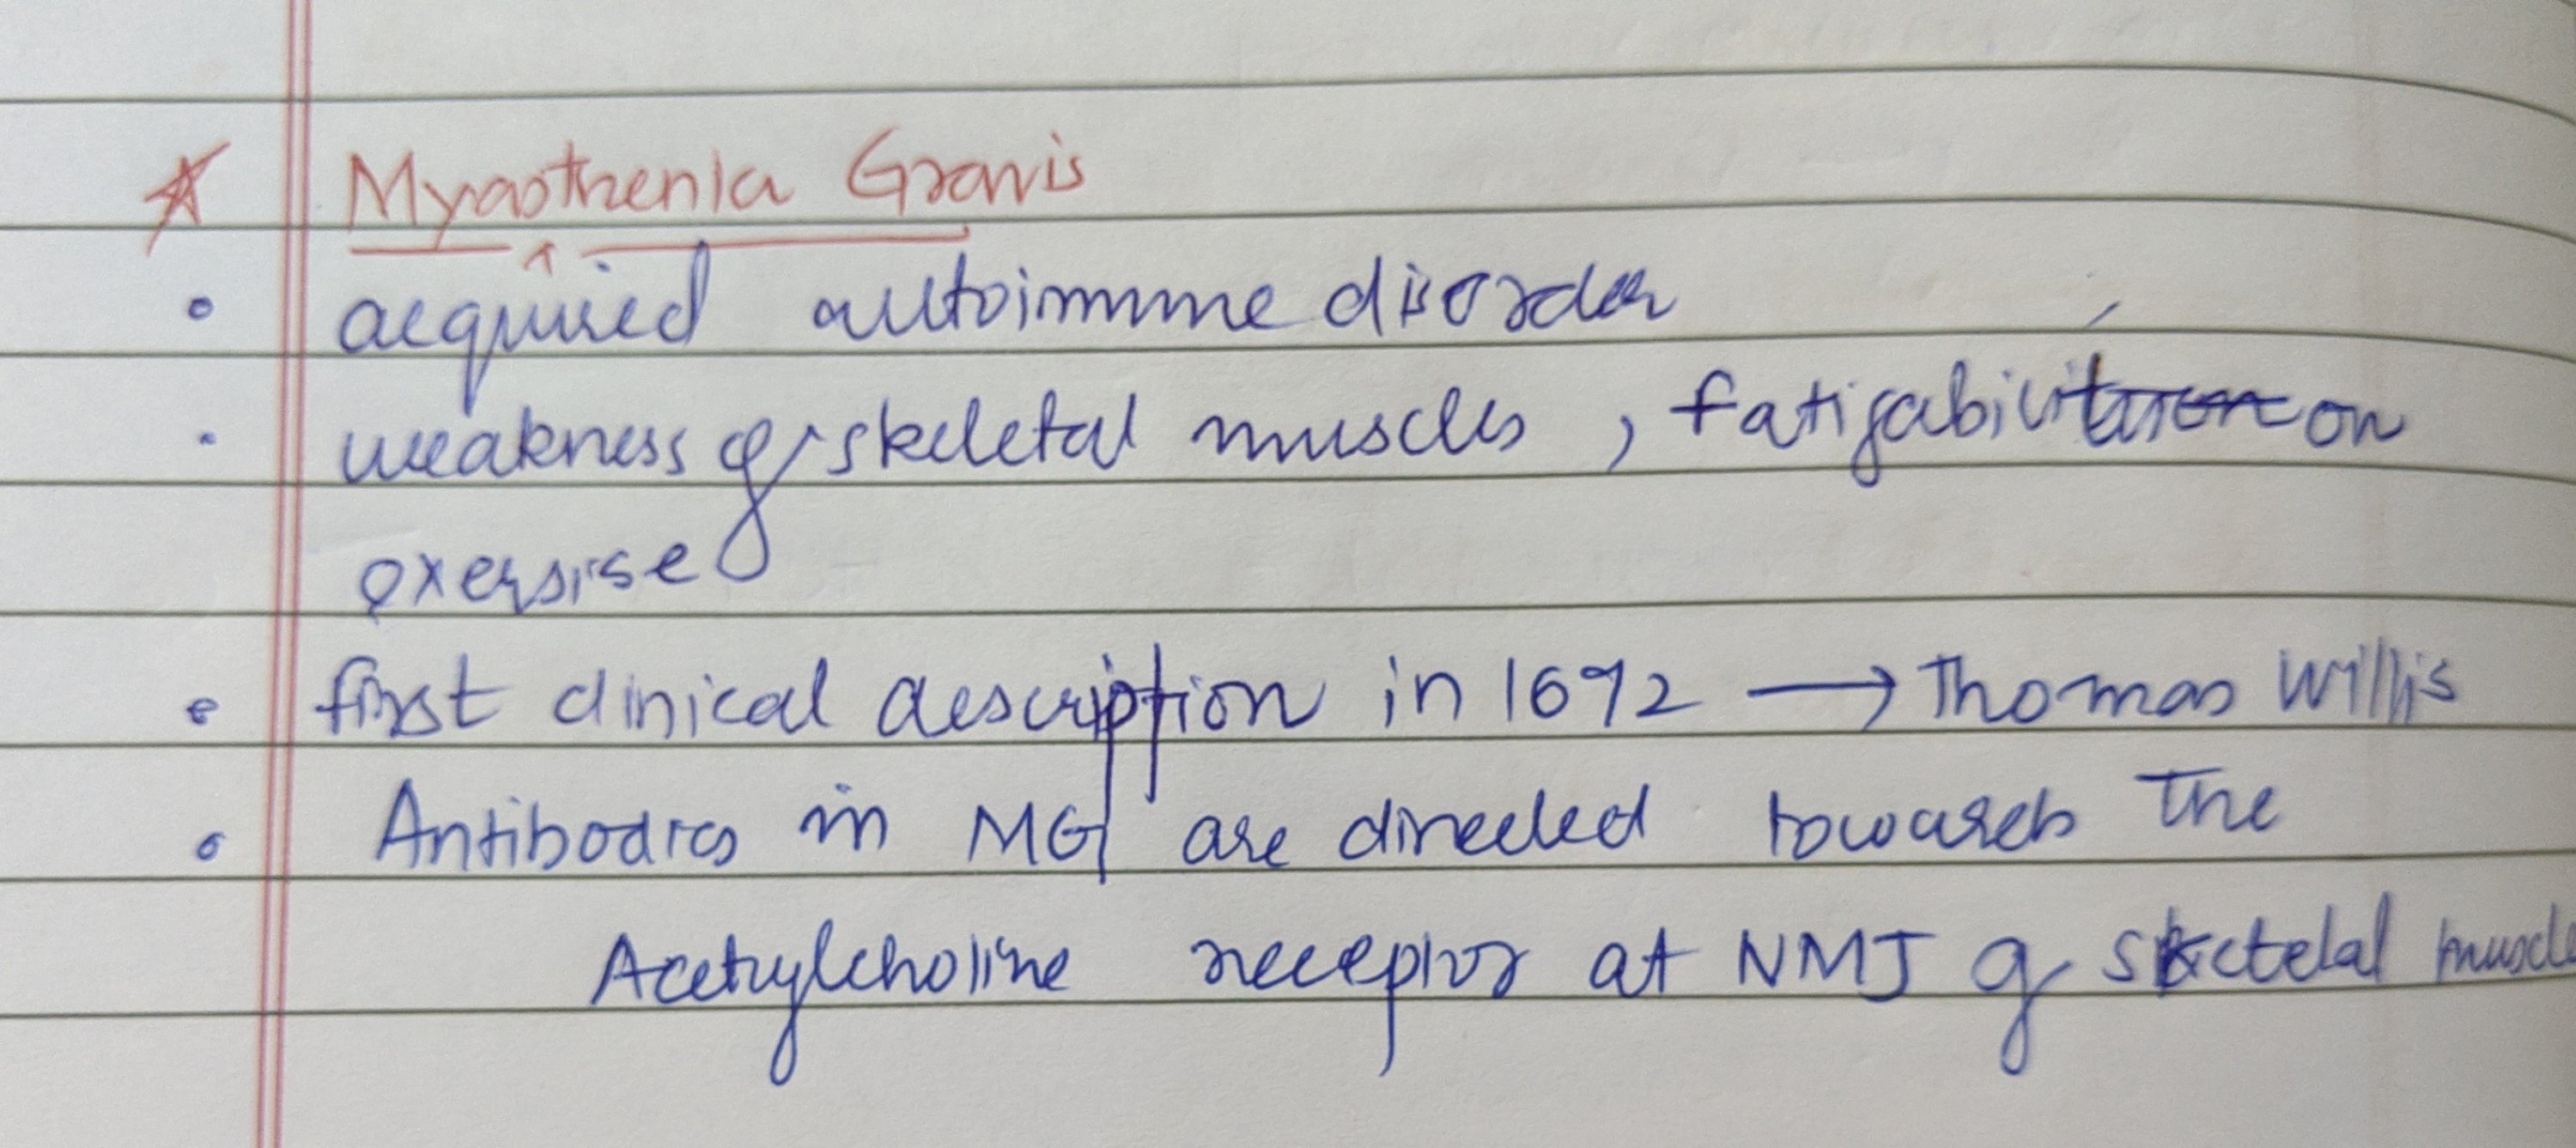 Myasthenia Gravis
acquired autoimmune disorder
weakness of skeletal muscles, fatigabili on
exersise
first clinical description in 1672 → Thomas Willis
Antibodies in MG are directed towards the
Acetylcholine receptor at NMJ of sketelal muscle